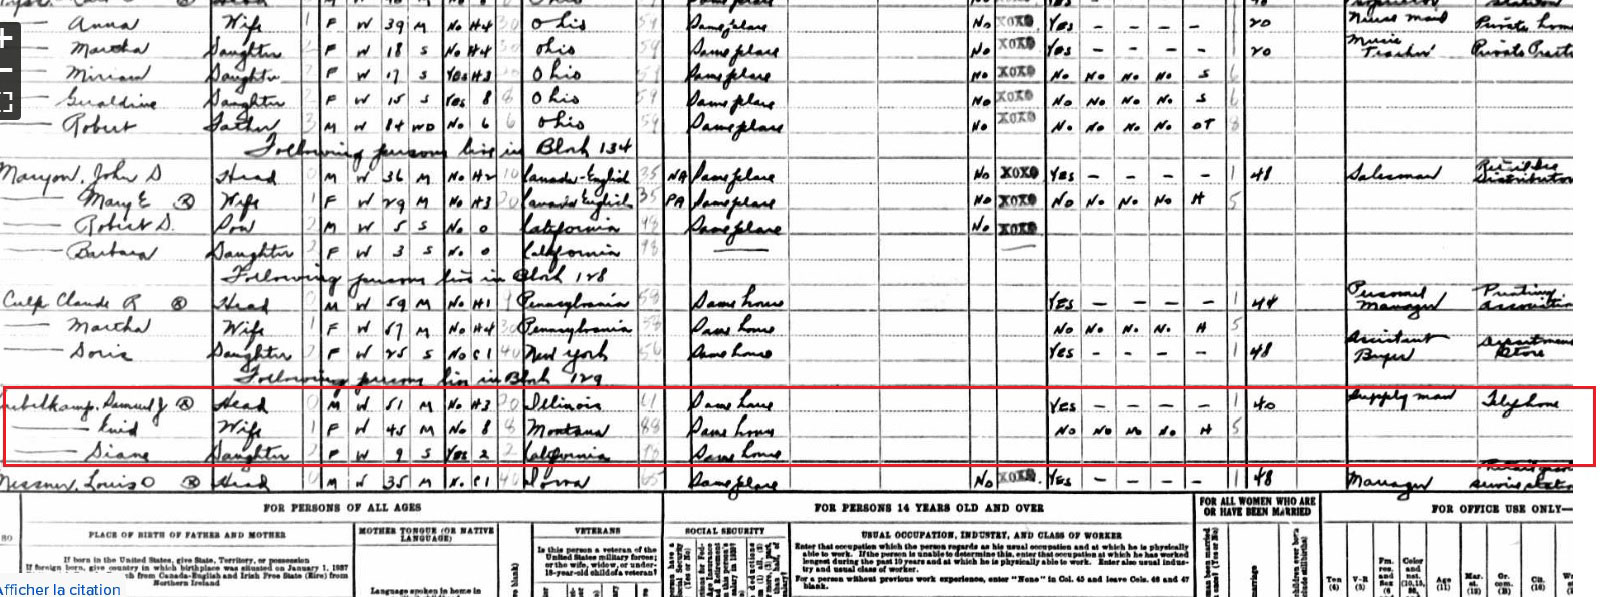 Anna Wife 1 F W 39 M No H4 30 Ohio 59 Same place No XOXO Yes – – – – 1 20 Nurse maid Private home
Martha Daughter 2 F W 18 S No H4 30 Ohio 59 Same place No XOXO Yes – – – – 1 20 Music Teacher Private
Miriam Daughter 2 F W 17 S Yes H3 Ohio 59 Same place No XOXO No No No No S 6
Geraldine Daughter 2 F W 15 S Yes 8 8 Ohio 59 Same place No XOXO No No No No S 6
Robert Father 3 M W 84 WD No 6 6 Ohio 59 Same place No XOXO No No No No OT 8
Following persons live in Block 134
Manyon, John D Head 0 M W 36 M No H2 10 Canada-English 35 NA Same place No XOXO Yes – – – – 1 48 Salesman
Mary E Ⓧ Wife 1 F W 29 M No H3 Canada English 35 PA Same place No XOXO No No No No H 5
Robert D. Son 2 M W 5 S No 0 California 98 Same place No XOXO
Barbara Daughter 2 F W 3 S No 0 California 98
Following persons live in Block 128
Culp Claude R Ⓧ Head 0 M W 59 M No H1 Pennsylvania 58 Same house Yes – – – – 1 44 Personnel Manager Printing Association
Martha Wife 1 F W 57 M No H4 30 Pennsylvania 58 Same house No No No No H 5
Doris Daughter 2 F W 25 S No C1 40 New York 56 Same house Yes – – – – 1 48 Assistant Buyer Department Store
Following persons live in Block 129
Samuel J Ⓧ Head 0 M W 51 M No H3 Illinois 61 Same house Yes – – – – 1 40 Supply man Telephone
Enid Wife 1 F W 45 M No 8 8 Montana 88 Same house No No No No H 5
Diane Daughter 2 F W 9 S Yes 2 2 California 98 Same house
Messner, Louis O Ⓧ Head 0 M W 35 M No C1 40 Iowa 65 Same place No XOXO Yes – – – – 1 48 Manager
FOR PERSONS OF ALL AGES
FOR PERSONS 14 YEARS OLD AND OVER
FOR ALL WOMEN WHO ARE OR HAVE BEEN MARRIED
FOR OFFICE USE ONLY—
PLACE OF BIRTH OF FATHER AND MOTHER
MOTHER TONGUE (OR NATIVE LANGUAGE)
VETERANS
SOCIAL SECURITY
USUAL OCCUPATION, INDUSTRY, AND CLASS OF WORKER
If born in the United States, give State, Territory, or possession
If foreign born, give country in which birthplace was situated on January 1, 1937
h from Canada-English and Irish Free State (Eire) from
Northern Ireland
Language spoken in home in
Is this person a veteran of the
United States military forces;
or the wife, widow, or under-
18-year-old child of a veteran?
Enter that occupation which the person regards as his usual occupation and at which he is physically
able to work. If the person is unable to determine this, enter that occupation at which he has worked
longest during the past 10 years and at which he is physically able to work. Enter also usual indus-
try and usual class of worker.
For a person without previous work experience, enter "None" in Col. 45 and leave Cols. 46 and 47
blank.
Ten (4)
V-R
Age (11)
Afficher la citation